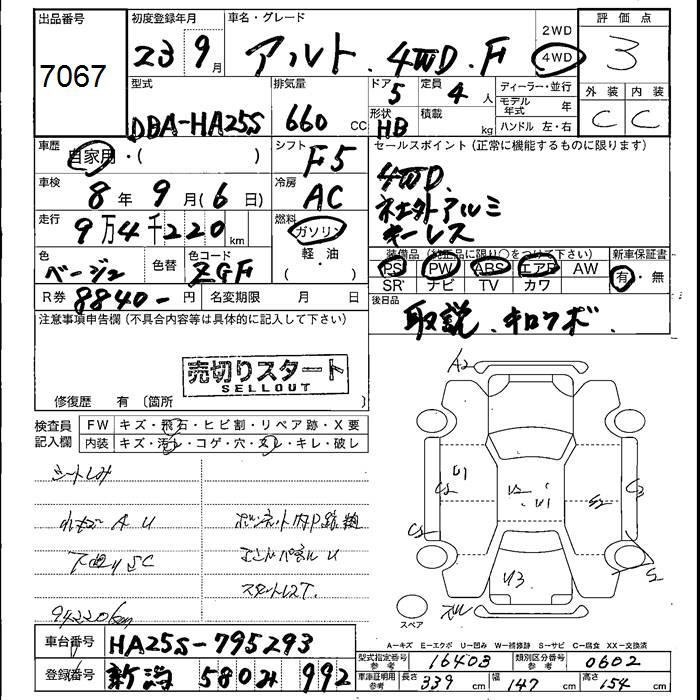 出品番号 初度登録年月 車名・グレード 評価点
7067 23 9月 アルト. 4WD. F 2WD 4WD 3
型式 排気量 ドア 5 定員 4人 ディーラー・並行 外装 内装
DBA-HA25S 660 CC 形状 HB 積載 kg モデル年式 年 C C
ハンドル 左・右
車歴 自家用・( ) シフト F5 セールスポイント(正常に機能するものに限ります)
車検 8年 9月(6日) 冷房 AC 4WD.
走行 9万4千220km 燃料 ガソリン 社外アルミ
軽・油 キーレス
( )
色 ベージュ 色替 色コード ZGF 装備品(純正品に限り○をつけて下さい) 新車保証書
PS PW ABS エアB AW 有・無
SR ナビ TV カワ
R券 8840-円 名変期限 月 日 後日品
取説. キロクボ.
注意事項申告欄(不具合内容等は具体的に記入して下さい)
売切りスタート
SELLOUT
修復歴 有(箇所 )
検査員記入欄 FW キズ・飛石・ヒビ割・リペア跡・X要
内装 キズ・汚レ・コゲ・穴・スレ・キレ・破レ
A2
シートしみ
U1 C2 U2 U1 S2 C2
A U
ボンネット内P
下廻りSC エンドパネルU
S2
U3
94220km
スペア
A=キズ E=エクボ U=凹み W=補修跡 S=サビ C=腐食 XX=交換済
車台番号 HA25S-795293
型式指定番号 参考 16403 類別区分番号 参考 0602
登録番号 新潟 580 み 992
車庫証明用 参考 長さ 339cm 幅 147cm 高さ 154cm